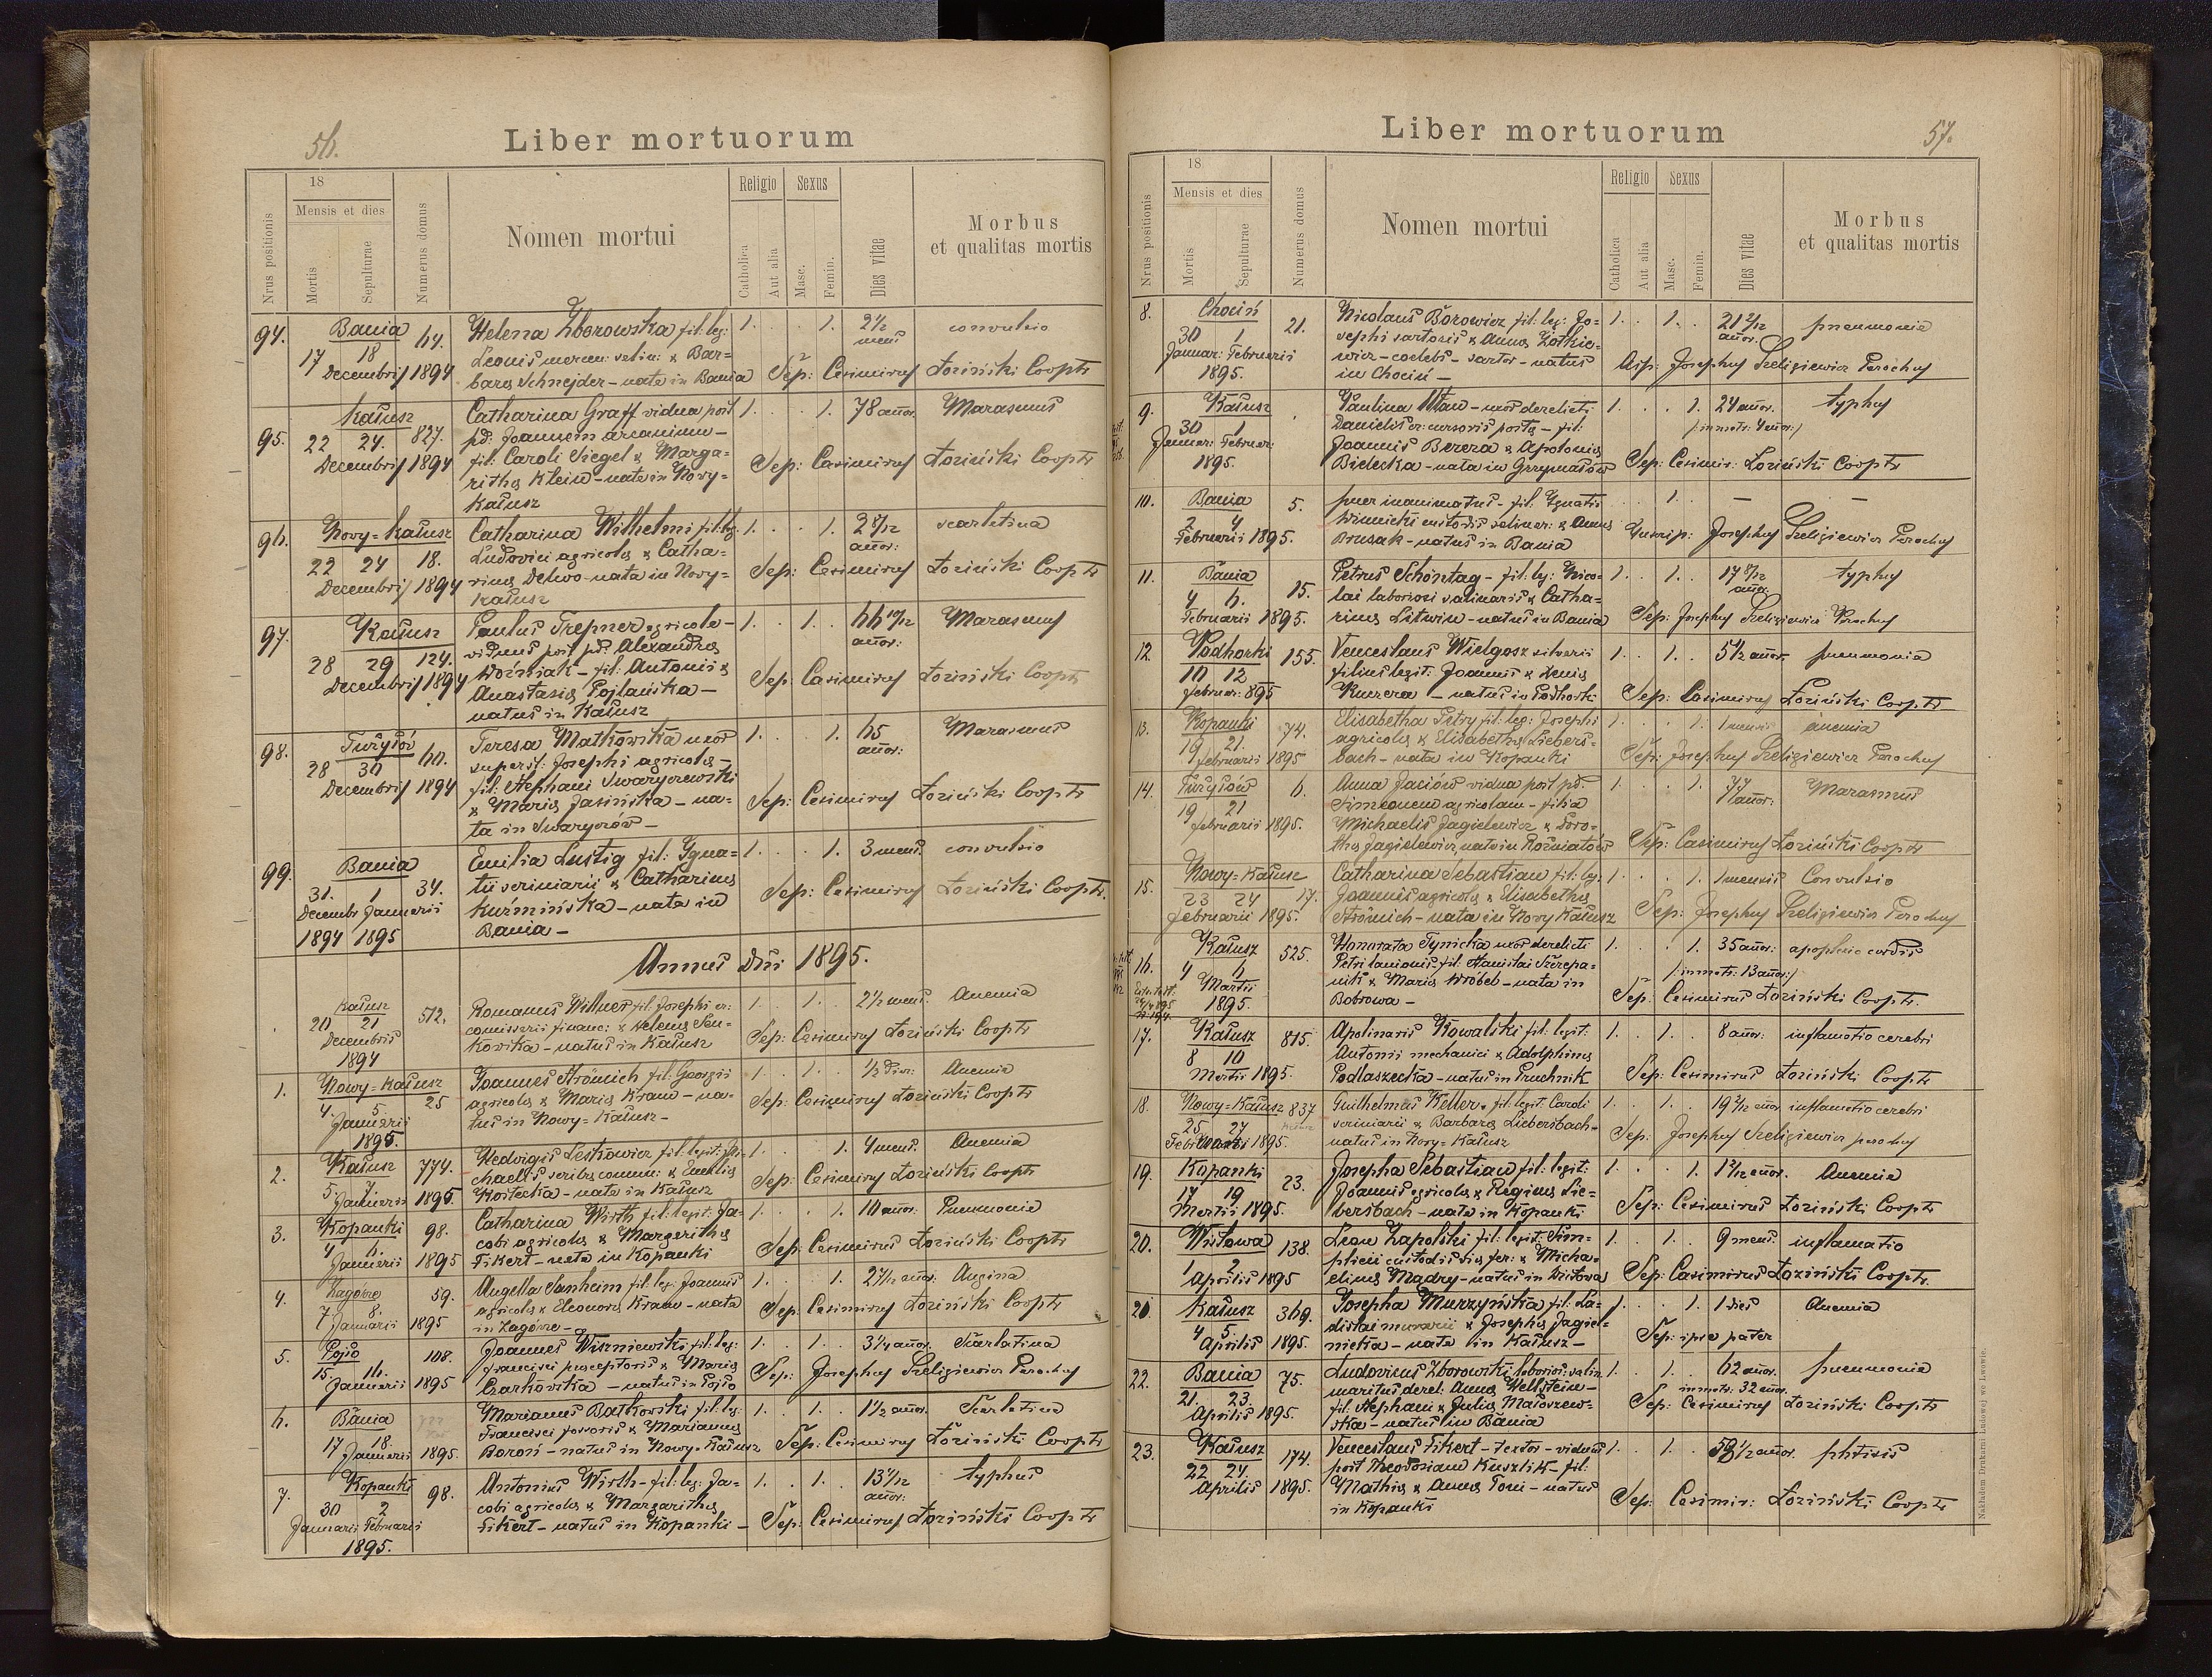 56.
Liber mortuorum
Nrus positionis
18
Mensis et dies
Mortis
Sepulturae
Numerus domus
Nomen mortui
Religio
Catholica
Aut alia
Sexus
Masc.
Femin.
Dies vitae
Morbus
et qualitas mortis
94. Bania 64. Helena Zborowska fil: leg: 1. 1. 2 1/2 mens convulsio
17 18 Leonis mercen: salin: & Bar=
Decembris 1894 bara Schnejder - nata in Bania Sep: Casimirus Łoziński Cooptr
95. Kałusz 827. Catharina Graff vidua post 1. 1. 78 annor. Marasmus
22 24. pd. Joannem arcarium -
Decembris 1894 fil: Caroli Siegel & Marga= Sep: Casimirus Łoziński Cooptr
ritha Klein - nata in Nowy=
Kałusz
96. Nowy=Kałusz Catharina Wilhelmi fil: leg. 1. 1. scarlatina
22 24 18. Ludovici agricola & Catha= annor:
Decembris 1894 rina - nata in Nowy= Sep: Casimirus Łoziński Cooptr
Kałusz
97. Kałusz 124. Paulus Trepner agricola - 1. 1. 66 10/12 Marasmus
28 29 viduus post pd. Alexandra annor:
Decembris 1894 Woźniak - fil: Antonii & Sep: Casimirus Łoziński Cooptr
Anastasia -
natus in Kałusz
98. Tużyłów 60. Teresa Matkowska uxor 1. 1. 65 Marasmus
28 30 superst: Josephi agricola - annor:
Decembris 1894 fil: Stephani Swaryczewski
& Maria Jasińska - na= Sep: Casimirus Łoziński Cooptr
ta in Swaryczów -
99. Bania 34. Emilia Lustig fil: Igna= 1. 1. 3 mens. convulsio
31. 1 tii scriniarii & Catharina
Decembr Januarii Kuźmińska - nata in Sep: Casimirus Łoziński Cooptr.
1894 1895 Bania -
Annus Dni 1895.
Kałusz 512. Romanus Willner fil: Josephi 1. 1. 2 1/2 mens. Anemia
20 21 comissarii financ: & Helena Sen=
Decembris kowska - natus in Kałusz Sep: Casimirus Łoziński Cooptr
1894
1. Nowy=Kałusz 25 Joannes Strömich fil: Georgii 1. 1. 1/2 Anemia
4. 5. agricola & Maria Kraus - na= Sep: Casimirus Łoziński Cooptr
Januarii tus in Nowy=Kałusz -
1895.
2. Kałusz 774. Hedvigis Leskowicz fil: legit: Mi= 1. 1. 4 mens. Anemia
5. 7. chaelis scriba commun: & Emilia Sep: Casimirus Łoziński Cooptr
Januarii 1895 Kostecka - nata in Kałusz
3. Kopanki 98. Catharina Wirth fil: legit: Ja= 1. 1. 10 annor. Pneumonia
4 6. cobi agricola & Margaritha Sep: Casimirus Łoziński Cooptr
Januarii 1895 Fikert - nata in Kopanki
4. Zagórze 59. Angella Sanheim fil: leg: Joannis 1. 1. annor. Angina
7 8. agricola & Eleonora Kraus - nata Sep. Casimirus Łoziński Cooptr
Januarii 1895 in Zagórze -
5. Pojło 108. Joannes Wiszniewski fil: leg: 1. 1. 3 1/4 annor. Scarlatina
15. 16. Francisci praeceptoris & Maria Sep: Josephus Szeligiewicz Parochus
Januarii 1895 Czarkowska - natus in Pojło
6. Bania Marianus Batkowski fil: leg. 1. 1. 1 1/2 annor. Scarlatina
17 18. Francisci & Marianna
Januarii 1895. Boroń - natus in Nowy-Kałusz Sep: Casimirus Łoziński Cooptr
7. Kopanki 98. Antonius Wirth - fil: leg: Ja= 1. 1. 13 typhus
30 2 cobi agricola & Margaritha annor:
Januarii Februarii Fikert - natus in Kopanki - Sep: Casimirus Łoziński Cooptr
1895.
57.
Liber mortuorum
Nrus positionis
18
Mensis et dies
Mortis
Sepulturae
Numerus domus
Nomen mortui
Religio
Catholica
Aut alia
Sexus
Masc.
Femin.
Dies vitae
Morbus
et qualitas mortis
8. Chocin 21. Nicolaus Borowicz fil: leg: Jo= 1. 1. 21 2/12 pneumonia
30 1 sephi sartoris & Anna Żółkie= annor.
Januar: Februarii wicz - coelebs - sartor - natus
1895. in Chocin - Josephus Szeligiewicz Parochus
9. Kałusz Paulina - uxor derelicti 1. 1. 24 annor. typhus
30 1 Danielis cursoris posta - fil: /in matr: 4 annor:/
Januar: Februar: Joannis Bereza & Apolonia
1895. Bielecka - nata in Grzymałów Sep: Casimir: Łoziński Cooptr
10. Bania 5. puer inanimatus - fil: Ignatii 1. - -
2 4 Winnicki custodis salinar: & Anna
Februarii 1895. Brusak - natus in Bania Inscrip: Josephus Szeligiewicz Parochus
11. Bania 15. Petrus Schöntag - fil: leg: Nico= 1. 1. 17 8/12 typhus
4 6. lai laboriosi salinaris & Catha= anno.
Februarii 1895. rina Litwin - natus in Bania Sep: Josephus Szeligiewicz Parochus
12. Podhorki 155. Venceslaus Wielgosz silvarii 1. 1. 5 1/2 annor. pneumonia
10 12 filius legit: Joannis & Xenia
Februar: 895 Kuzzera - natus in Podhorki Sep: Casimirus Łoziński Cooptr
13. Kopanki 74. Elisabetha Petry fil: leg: Josephi 1. 1. 1 mensis anemia
19 21. agricola & Elisabetha Liebers= Sep: Josephus Szeligiewicz Parochus
Februarii 1895 bach - nata in Kopanki
14. Tużyłów 6. Anna Jaciów vidua post pd. 1. 1. 77 Marasmus
19 21 Simeonem agricolam - filia annor:
Februarii 1895. Michaelis Jagielewicz & Doro=
thea Jagielewicz, nata in Rożniatów Sep: Casimirus Łoziński Cooptr
15. Nowy=Kałusz 17. Catharina Sebastian fil: leg: 1. 1. 1 mensis Convulsio
23 24 Joannis agricola & Elisabetha
Februarii 1895. Strömich - nata in Nowy Kałusz Sep: Josephus Szeligiewicz Parochus
16. Kałusz 525. Honorata Tynicka uxor derelicti 1. 1. 35 annor: apoplexia cordis
4 6 Petri lanionis, fil. Stanislai Szczepa= /in matr: 13 annor:/
Martii nik & Maria Wróbel - nata in Sep: Casimirus Łoziński Cooptr.
1895. Bobrowa -
17. Kałusz 815. Apolinaris Kowalski fil: legit: 1. 1. 8 annor: inflamatio cerebri
8 10 Antonii mechanici & Adolphina
Martii 1895. Podlaszecka - natus in Pruchnik Sep: Casimirus Łoziński Cooptr
18. Nowy=Kałusz 837 Guilhelmus Keller. fil: legit: Caroli 1. 1. 19 2/12 annor inflamatio cerebri
25 27 scriniarii & Barbara Liebersbach -
1895. natus in Nowy=Kałusz Sep: Josephus Szeligiewicz parochus
19. Kopanki 23. Josepha Sebastian fil: legit: 1. 1. 1 2/12 annor. Anemia
17 19 Joannis agricola & Regina Lie=
Martii 1895. bersbach - nata in Kopanki Sep: Casimirus Łoziński Cooptr
20. Wistowa 138. Leon Zapolski fil: legit: Sim= 1. 1. 9 mens. inflamatio
1 2 plicii custodis & Micha=
Aprilis 1895 elina Mądry - natus in Wistowa Sep: Casimirus Łoziński Cooptr.
21. Kałusz 369. Josepha Murzyńska fil: La= 1. 1. 1 dies Anemia
4 5 dislai murarii & Josepha Jagiel= Sep: ipse pater
Aprilis 1895. nicka - nata in Kałusz -
22. Bania 75. Ludovicus Zborowski laborios: salin. 1. 1. 62 annor. pneumonia
21. 23. maritus derel: Anna Wellstein - in matr: 32 annor.
Aprilis 1895. fil: Stephani & Julia Małoszew= Sep: Casimirus Łoziński Cooptr
ska - natus in Bania
23. Kałusz 174. Venceslaus Fikert - textor - viduus 1. 1. 1/2 annor. phtisis
22 24. post Theodosiam Kuszlik - fil:
Aprilis 1895. Mathia & Anna Toni - natus Sep: Casimir: Łoziński Cooptr
in Kopanki
Nakładem Drukarni Ludowej we Lwowie.